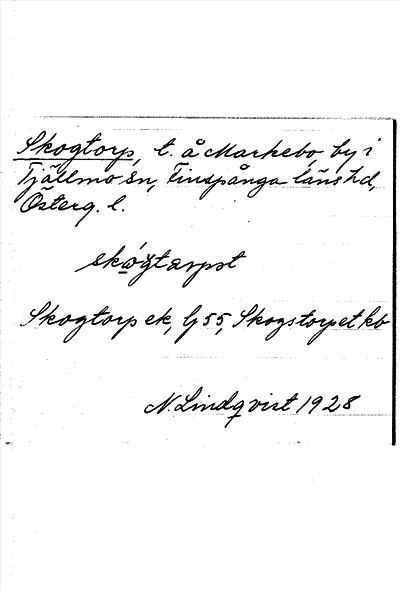 Skogtorp, t. å Markebo, by i
Tjällmo sn, Finspånga läns hd,
Österg. l.
skógtarpst
Skogtorp ek, lj 55, Skogstorpet kb
N. Lindqvist 1928